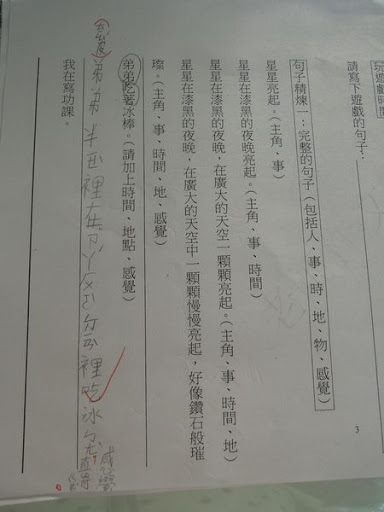 請寫下遊戲的句子:
句子精煉一:完整的句子(包括人、事、時、地、物、感覺)
星星亮起。(主角、事)
星星在漆黑的夜晚亮起。(主角、事、時間)
星星在漆黑的夜晚,在廣大的天空一顆顆亮起。(主角、事、時間、地)
星星在漆黑的夜晚,在廣大的天空中一顆顆慢慢亮起,好像鑽石般璀
璨。(主角、事、時間、地、感覺)
弟弟吃著冰棒。(請加上時間、地點、感覺)
弟弟半夜裡在 裡吃冰
感覺
我在寫功課。
3